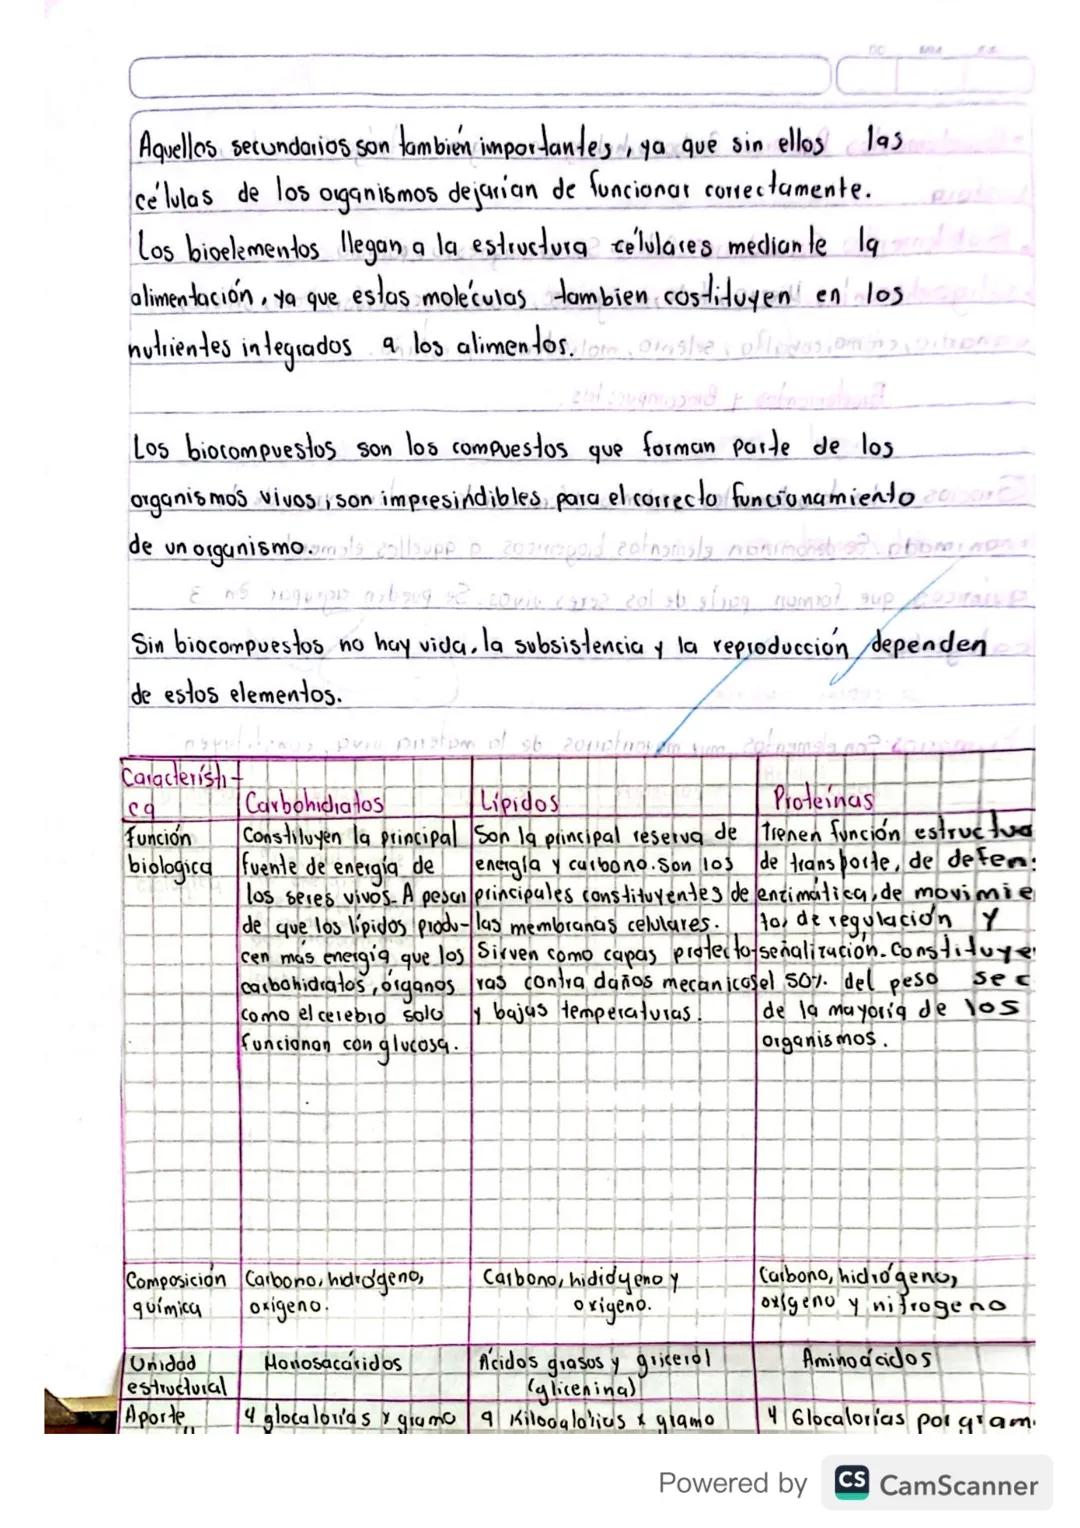 Aquellos secundarios son también importantes, ya que sin ellos las
células de los organismos dejarían de funcionar correctamente.
Los bioelementos llegan a la estructura célulares mediante la
alimentación, ya que estas moléculas tambien costituyen en los
nutrientes integrados a los alimentos.
Los biocompuestos son los compuestos que forman parte de los
organismos vivos, son impresindibles para el correcto funcionamiento
de un organismo.
Sin biocompuestos no hay vida, la subsistencia y la reproducción dependen
de estos elementos.
Característi-
ca
Carbohidratos
Lípidos
Proteínas
Función
biologica
Constituyen la principal
fuente de energía de
los seres vivos. A pesar
de que los lípidos produ-
cen más energía que los
carbohidratos, órganos
como el cerebro solo
funcionan con glucosa.
Son la principal reserva de
energía y carbono. Son los
principales constituyentes de
las membranas celulares.
Sirven como capas protecto-
ras contra daños mecanicos
y bajas temperaturas.
Tienen función estructura
de transporte, de defen
enzimática, de movimie
to, de regulación y
señalización. Constituye
el 50% del peso sec
de la mayoría de los
organismos.
Composición
química
Carbono, hidrógeno,
oxigeno.
Carbono, hididyeno y
oxigeno.
Carbono, hidrógeno,
oxígeno y nitrogeno
Unidad
estructural
Monosacáridos
Ácidos grasos y glicerol
(glicenina)
Aminoácidos
Aporte
4 glocalorías x gramo
9 Kilocalorias x gramo
4 Glocalorías por gram
Powered by CS CamScanner